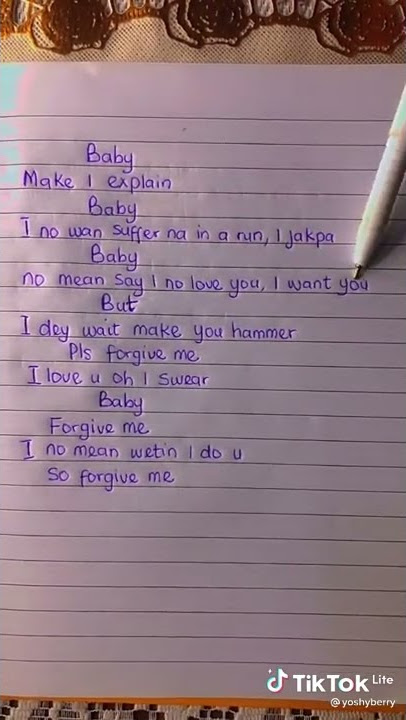 Baby
Make I explain
Baby
I no wan suffer na in a run, I jakpa
Baby
no mean say I no love you, I want you
But
I dey wait make you hammer
Pls forgive me
I love u oh I swear
Baby
Forgive me
I no mean wetin I do u
So forgive me
TikTok Lite
@yoshyberry